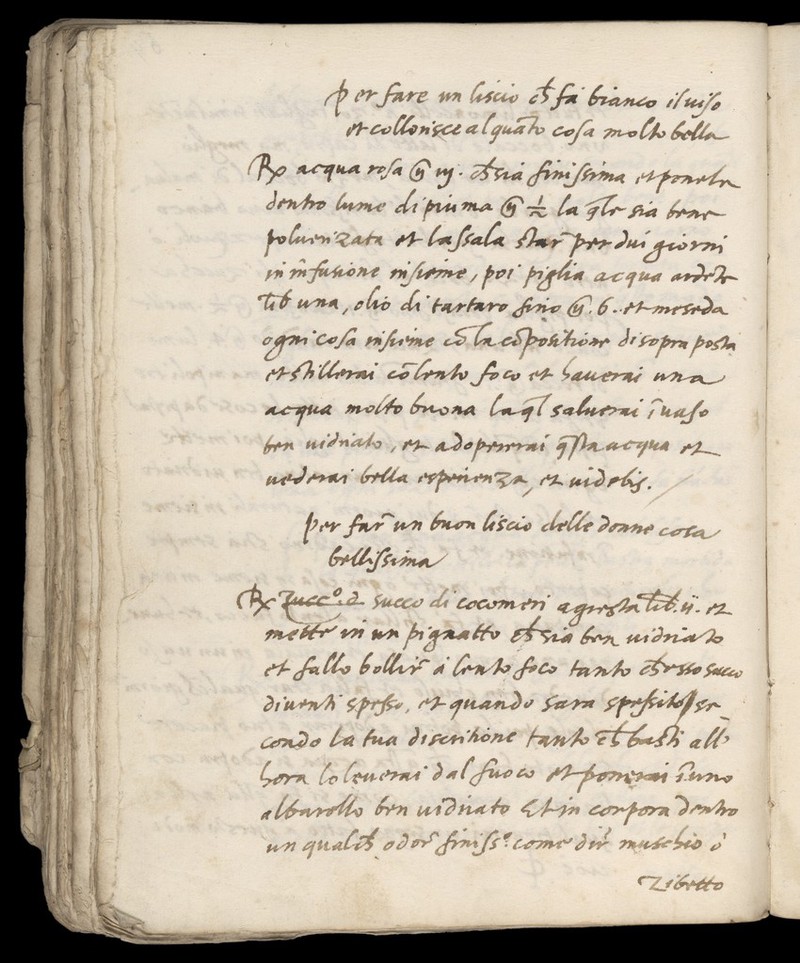 Per fare un liscio ch̃ fa bianco il uiso
et collorisce alquãto cosa molto bella
Rx acqua rosa ℥ iij. ch̃ sia finissima et ponele
dentro lume di piuma ℥ ½ la q̃le sia bene
poluerizata et lassala star̃ per dui giorni
in infusione insieme, poi piglia acqua ardẽte
lib̃ una, olio di tartaro fino ℥. 6. et meseda
ogni cosa insieme cõ la cõpositione di sopra posta
et stillerai cõ lento foco et hauerai una
acqua molto buona la q̃l saluerai ĩ uaso
ben uidriato, et adopererai q̃sta acqua et
uederai bella esperienza, et uidebis.
Per far̃ un buon liscio delle donne cosa
bellissima
Rx Zucc.º d succo di cocomeri agresta lib̃. ij. et
mette in un pignatto ch̃ sia ben uidriato
et fallo bollir̃ à lento foco tanto ch̃ esso succo
diuenti spesso, et quando sara spessito se
condo la tua discritione tanto ch̃ basti all'
hora lo leuerai dal fuoco et ponerai ĩ uno
albarollo ben uidriato Et in corpora dentro
un qualch̃ odor̃ finiss.º come dir̃ muschio ò
Zibetto